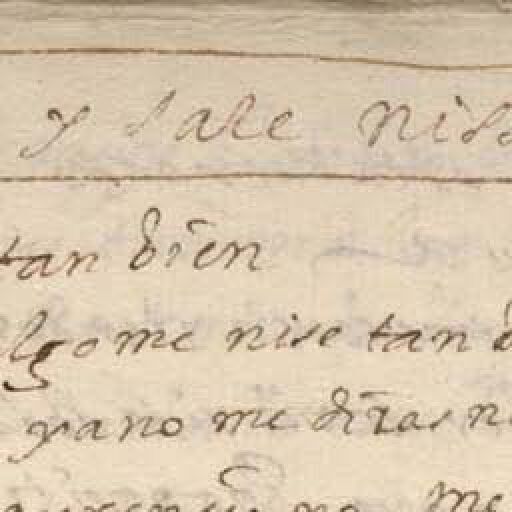 y sale nise
tan bien
lgome nise tan b
yano me diras n